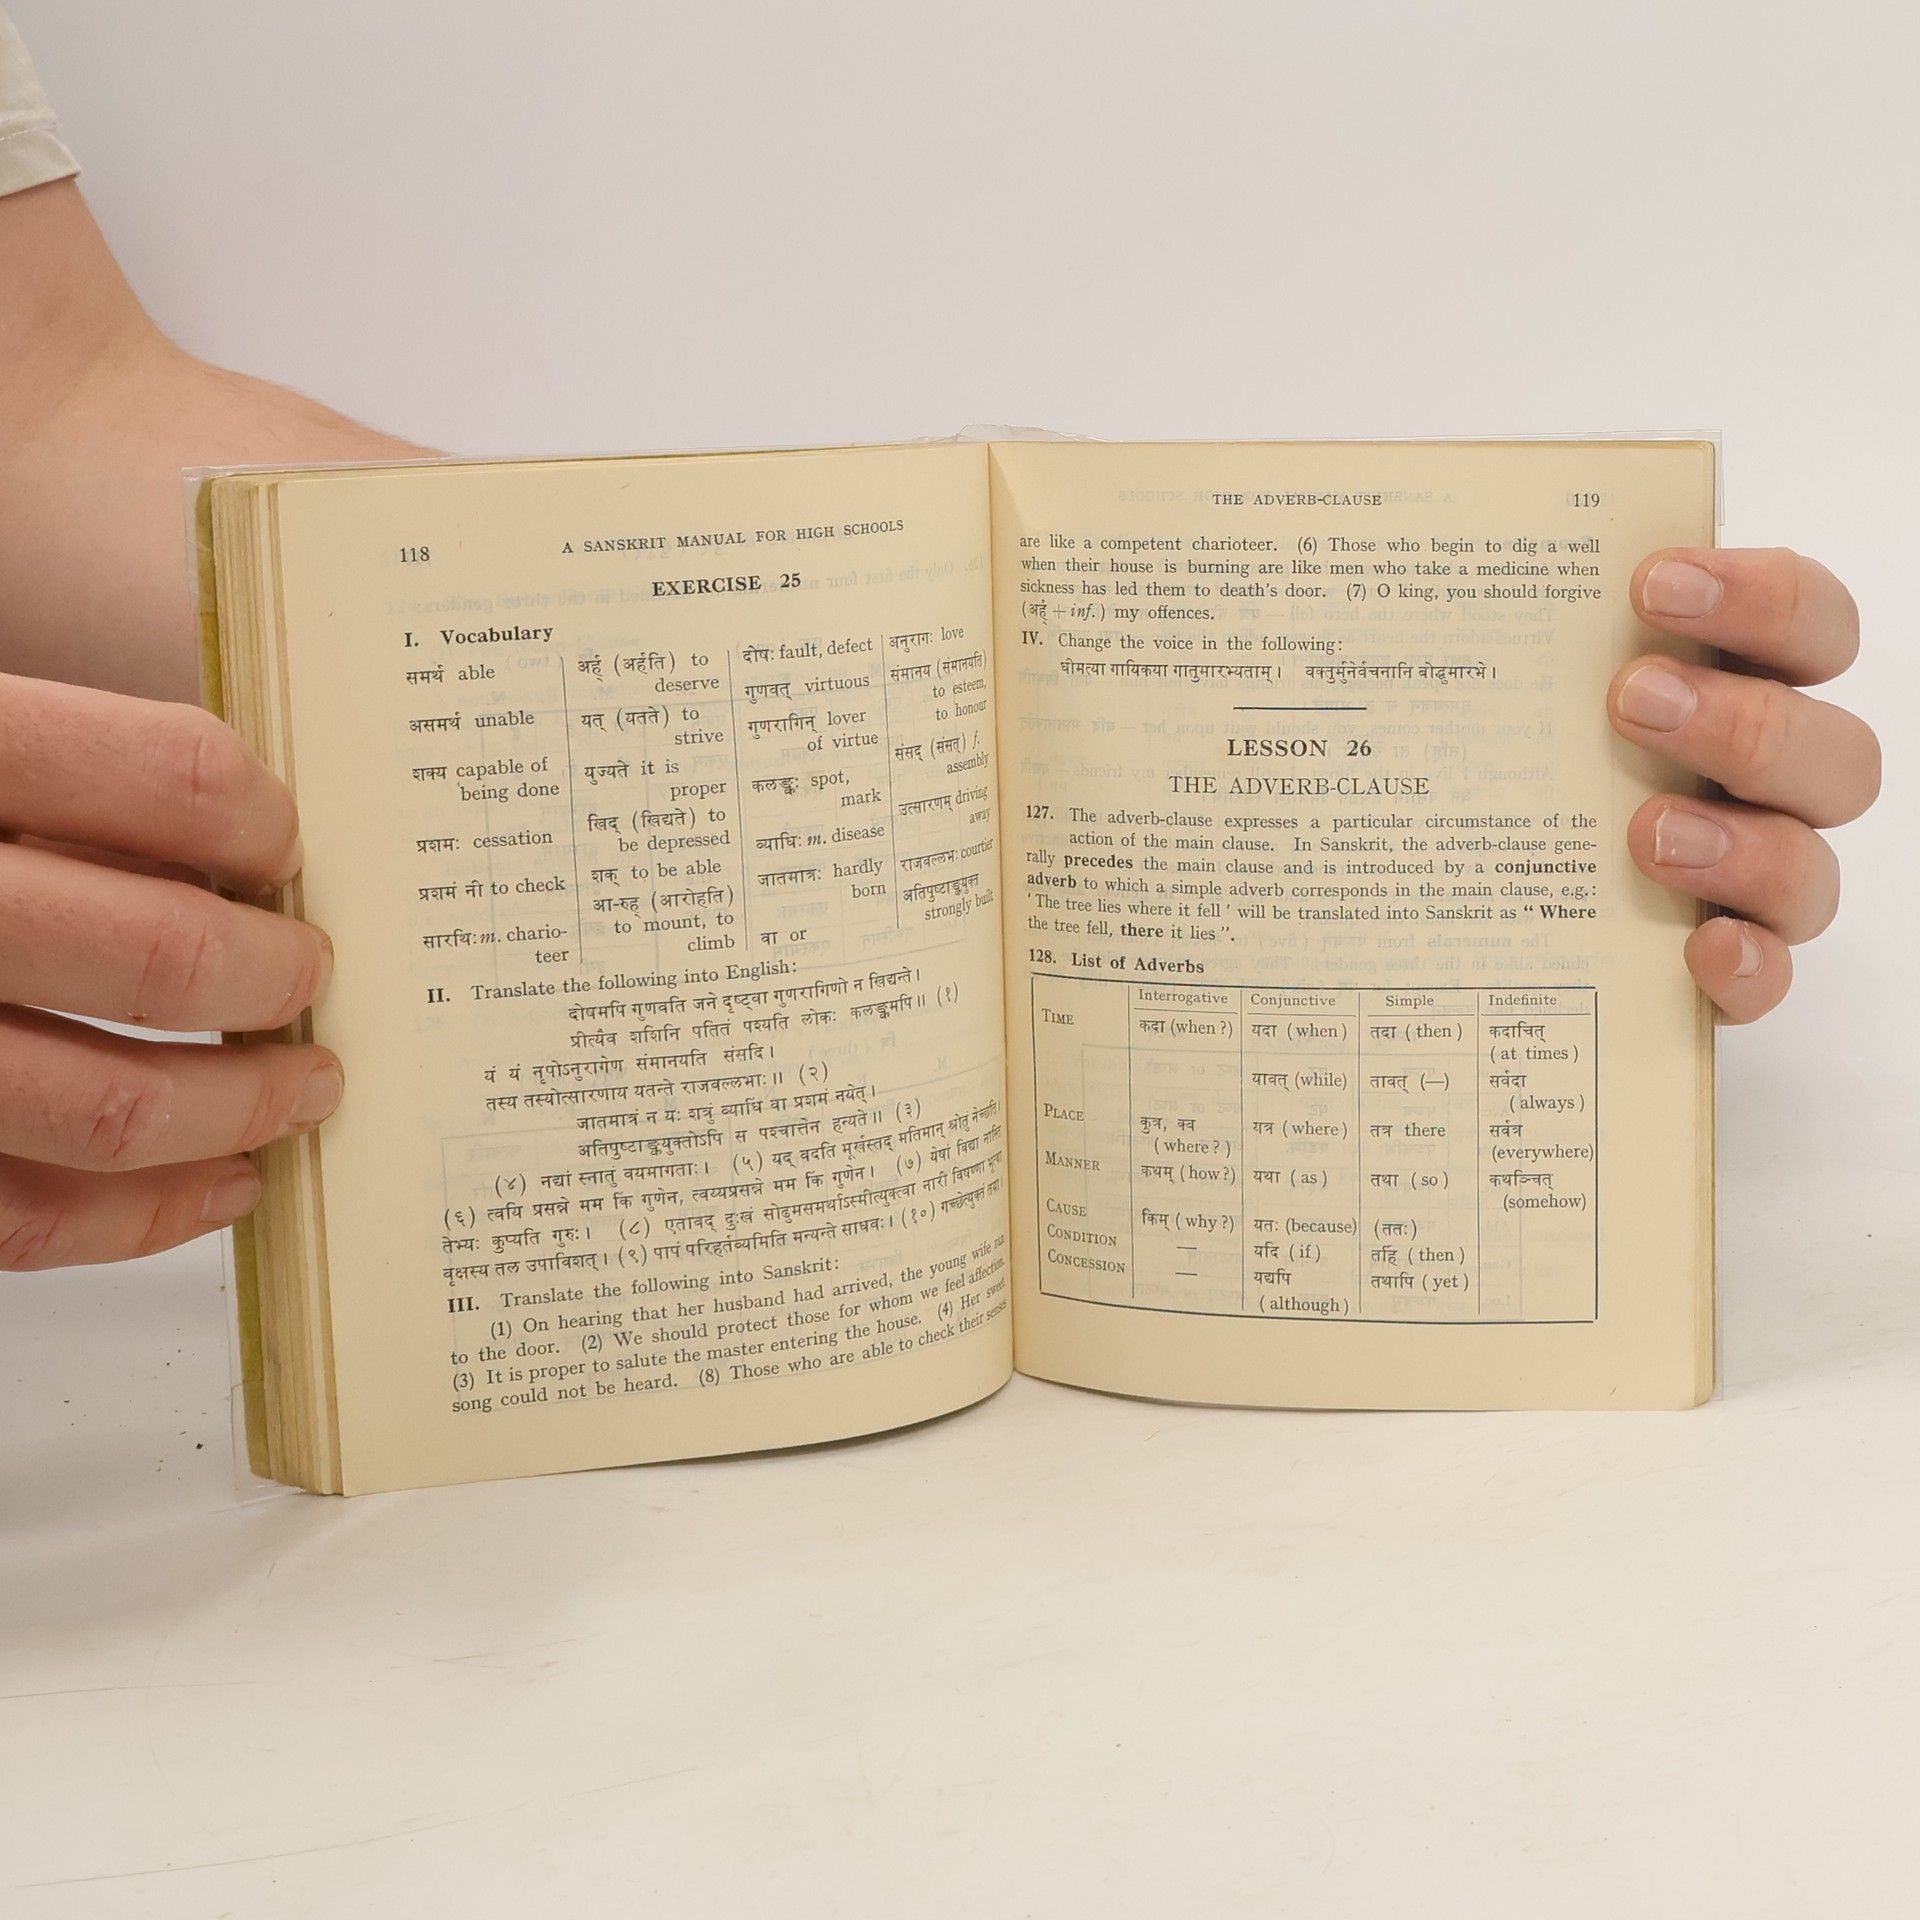 118
A SANSKRIT MANUAL FOR HIGH SCHOOLS
EXERCISE 25
I. Vocabulary
समर्थ able
असमर्थ unable
शक्य capable of
being done
प्रशमः cessation
प्रशमं नी to check
सारथिः m. chario-
teer
अर्ह् (अर्हति) to
deserve
यत् (यतते) to
strive
युज्यते it is
proper
खिद् (खिद्यते) to
be depressed
शक् to be able
आ-रुह् (आरोहति)
to mount, to
climb
दोषः fault, defect
गुणवत् virtuous
गुणरागिन् lover
of virtue
कलङ्कः spot,
mark
व्याधिः m. disease
जातमात्रः hardly
born
वा or
अनुरागः love
संमानय (संमानयति)
to esteem,
to honour
संसद् (संसत्) f.
assembly
उत्सारणम् driving
away
राजवल्लभः courtier
अतिपुष्टाङ्गयुक्त
strongly built
II. Translate the following into English:
दोषमपि गुणवति जने दृष्ट्वा गुणरागिणो न खिद्यन्ते।
प्रीत्यैव शशिनि पतितं पश्यति लोकः कलङ्कमपि॥ (१)
यं यं नृपोऽनुरागेण संमानयति संसदि।
तस्य तस्योत्सारणाय यतन्ते राजवल्लभाः॥ (२)
जातमात्रं न यः शत्रुं व्याधिं वा प्रशमं नयेत्।
अतिपुष्टाङ्गयुक्तोऽपि स पश्चात्तेन हन्यते॥ (३)
(४) नद्यां स्नातुं वयमागताः। (५) यद् वदति मूर्खस्तद् मतिमान् श्रोतुं नेच्छति।
(६) त्वयि प्रसन्ने मम किं गुणेन, त्वय्यप्रसन्ने मम किं गुणेन। (७) येषां विद्या नास्ति
तेभ्यः कुप्यति गुरुः। (८) एतावद् दुःखं सोढुमसमर्थाऽस्मीत्युक्त्वा नारी विषण्णा भूत्वा
वृक्षस्य तल उपाविशत्। (९) पापं परिहर्तव्यमिति मन्यन्ते साधवः। (१०) गच्छेत्युक्तं तया।
III. Translate the following into Sanskrit:
(1) On hearing that her husband had arrived, the young wife ran
to the door. (2) We should protect those for whom we feel affection.
(3) It is proper to salute the master entering the house. (4) Her sweet
song could not be heard. (8) Those who are able to check their senses
THE ADVERB-CLAUSE
119
are like a competent charioteer. (6) Those who begin to dig a well
when their house is burning are like men who take a medicine when
sickness has led them to death's door. (7) O king, you should forgive
(अर्ह् + inf.) my offences.
IV. Change the voice in the following:
धीमत्या गायिकया गातुमारभ्यताम्। वक्तुर्मुनेर्वचनानि बोद्धुमारभे।
LESSON 26
THE ADVERB-CLAUSE
127. The adverb-clause expresses a particular circumstance of the
action of the main clause. In Sanskrit, the adverb-clause gene-
rally precedes the main clause and is introduced by a conjunctive
adverb to which a simple adverb corresponds in the main clause, e.g.:
'The tree lies where it fell' will be translated into Sanskrit as "Where
the tree fell, there it lies".
128. List of Adverbs
Interrogative Conjunctive Simple Indefinite
TIME कदा (when?) यदा (when) तदा (then) कदाचित्
(at times)
यावत् (while) तावत् (—) सर्वदा
(always)
PLACE कुत्र, क्व यत्र (where) तत्र there सर्वत्र
(where?) (everywhere)
MANNER कथम् (how?) यथा (as) तथा (so) कथञ्चित्
(somehow)
CAUSE किम् (why?) यतः (because) (ततः)
CONDITION — यदि (if) तर्हि (then)
CONCESSION — यद्यपि तथापि (yet)
(although)